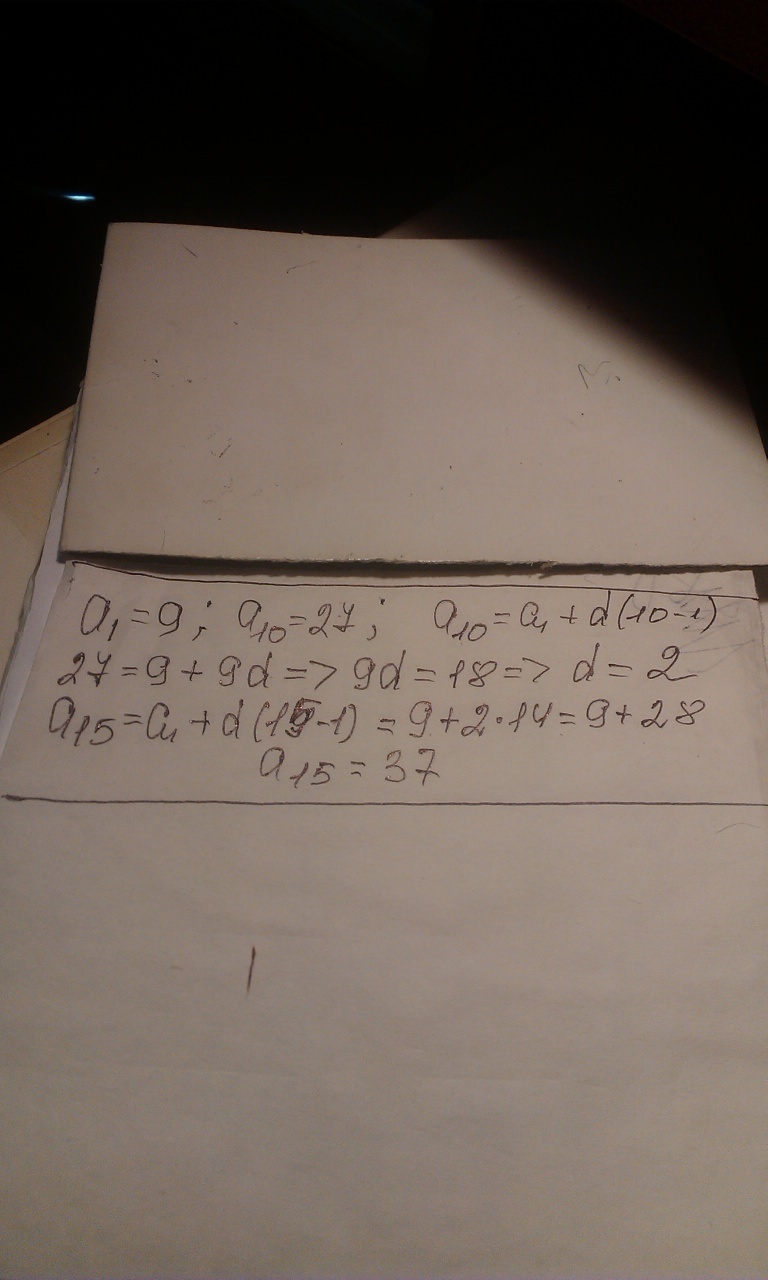 a₁=9; a₁₀=27; a₁₀=a₁+d(10-1)
27=9+9d=>9d=18=>d=2
a₁₅=a₁+d(15-1)=9+2·14=9+28
a₁₅=37